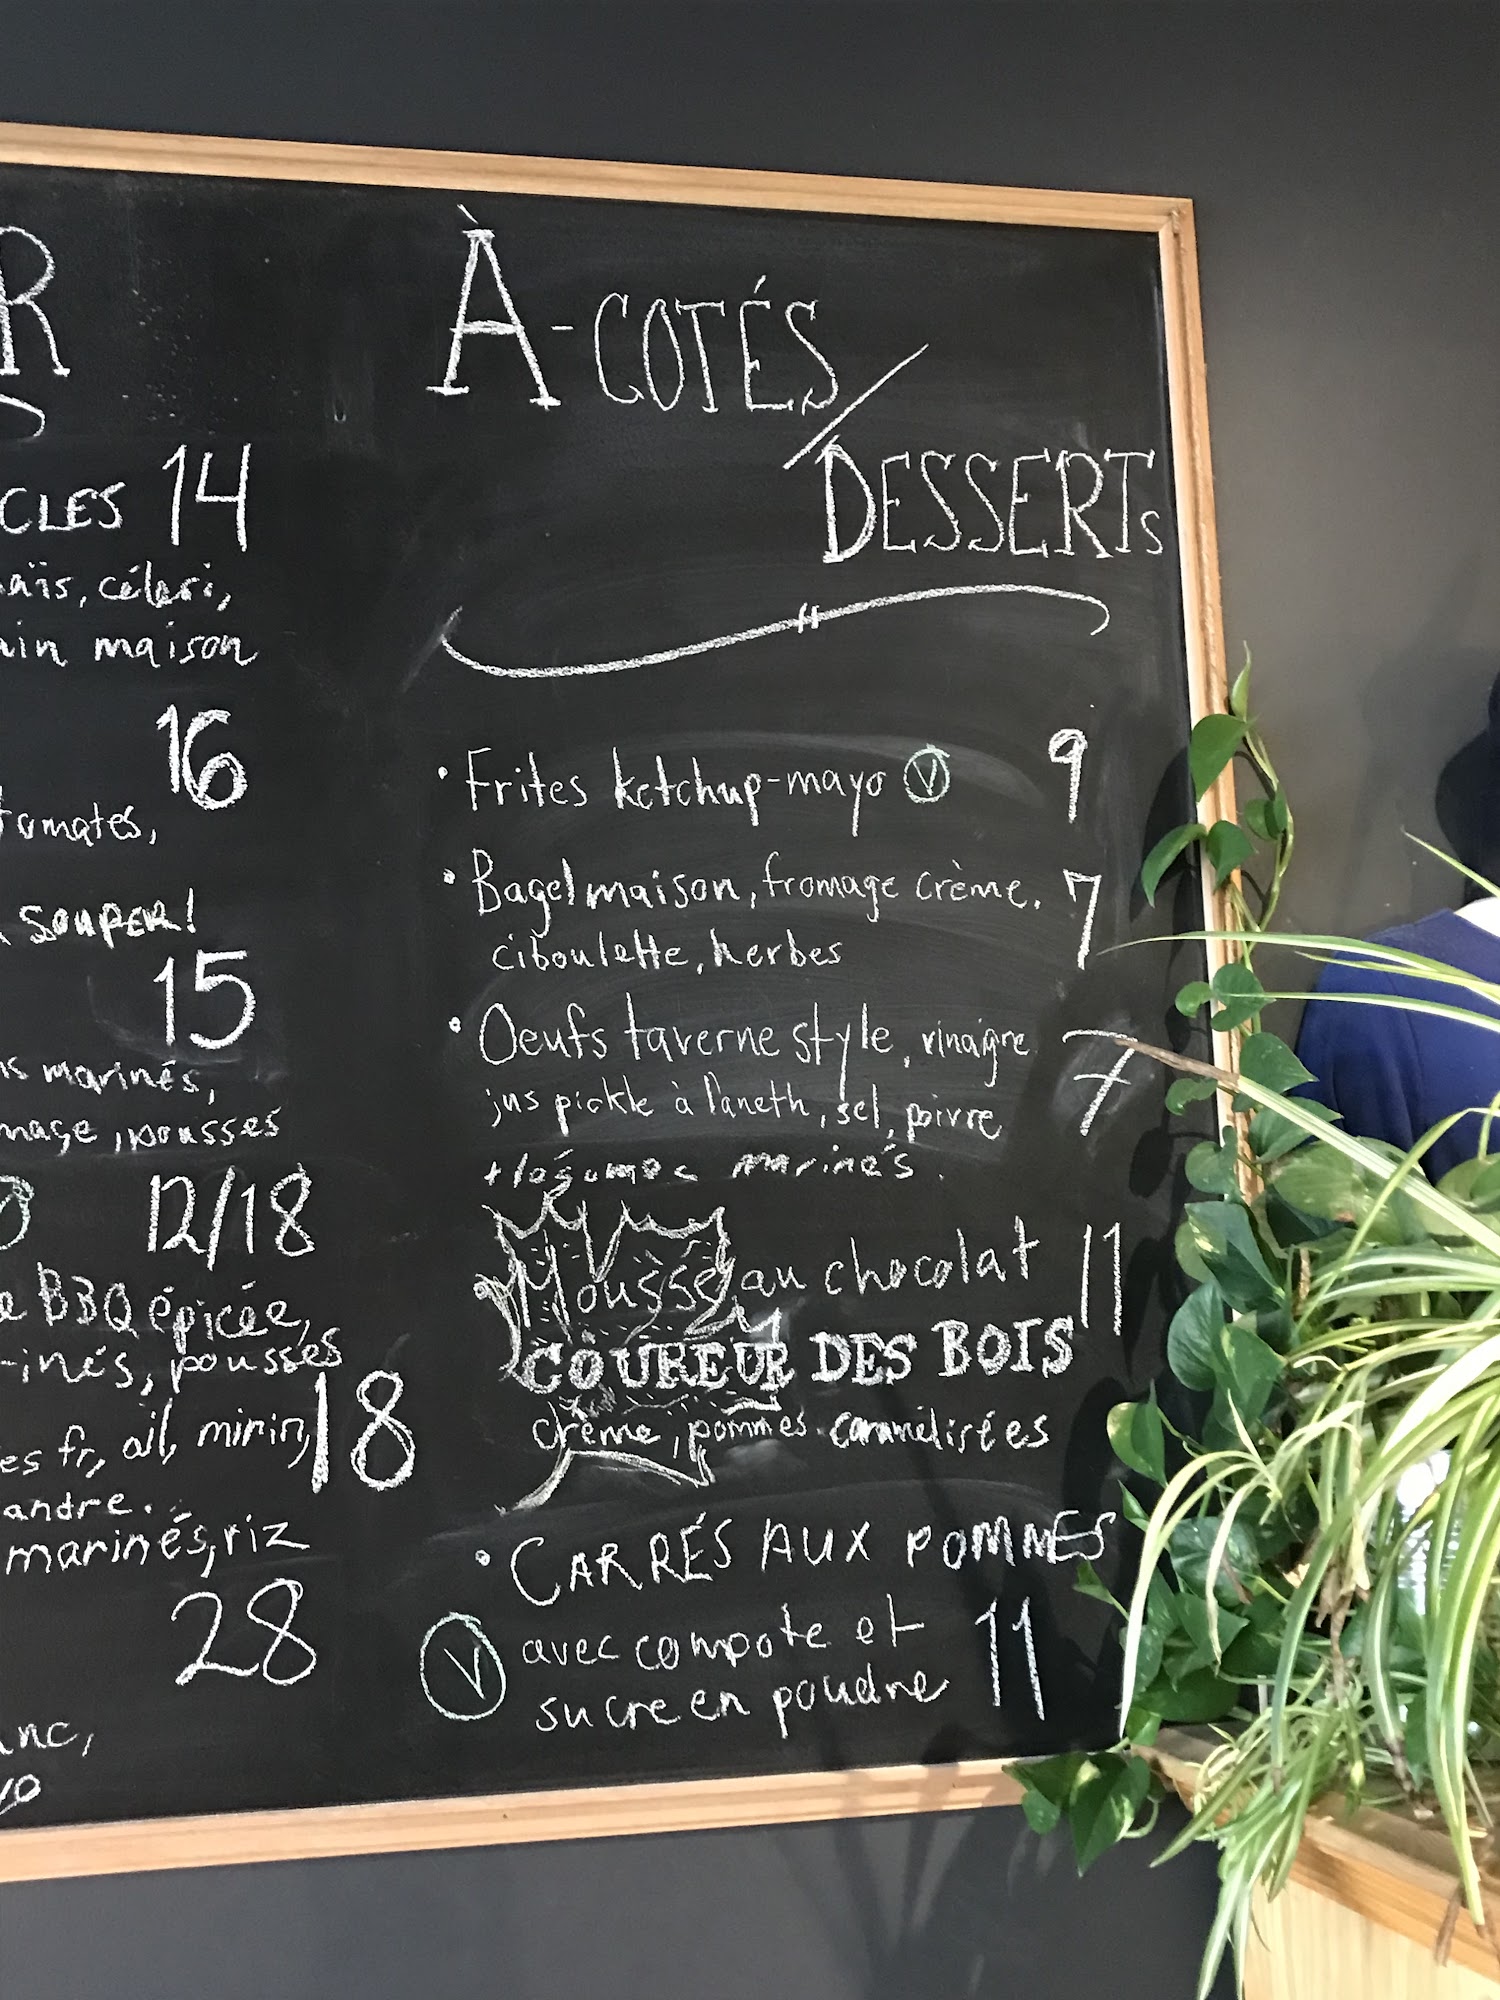 R
CLES 14
aïs, céleri,
ain maison
16
tomates,
SOUPER!
15
marinés,
mage, pousses
12/18
BBQ épicée,
inés, pousses
es fr, ail, mirin, 18
andre.
marinés, riz
28
nc,
yo
À-COTÉS/
DESSERTS
• Frites ketchup-mayo V 9
• Bagel maison, fromage crème, 7
ciboulette, herbes
• Oeufs taverne style, vinaigre 7
jus pickle à l'aneth, sel, poivre
+ légumes marinés.
Mousse au chocolat 11
COUREUR DES BOIS
crème, pommes caramélisées
• CARRÉS AUX POMMES
V avec compote et 11
sucre en poudre